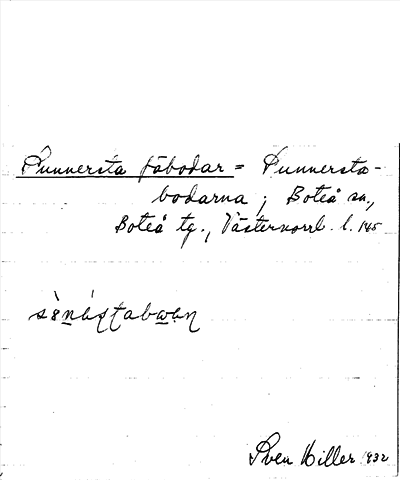 Sunnersta fäbodar = Sunnersta-
bodarna; Boteå sn.,
Boteå tg., Västernorrl. l. 145
Sven Hiller 1932